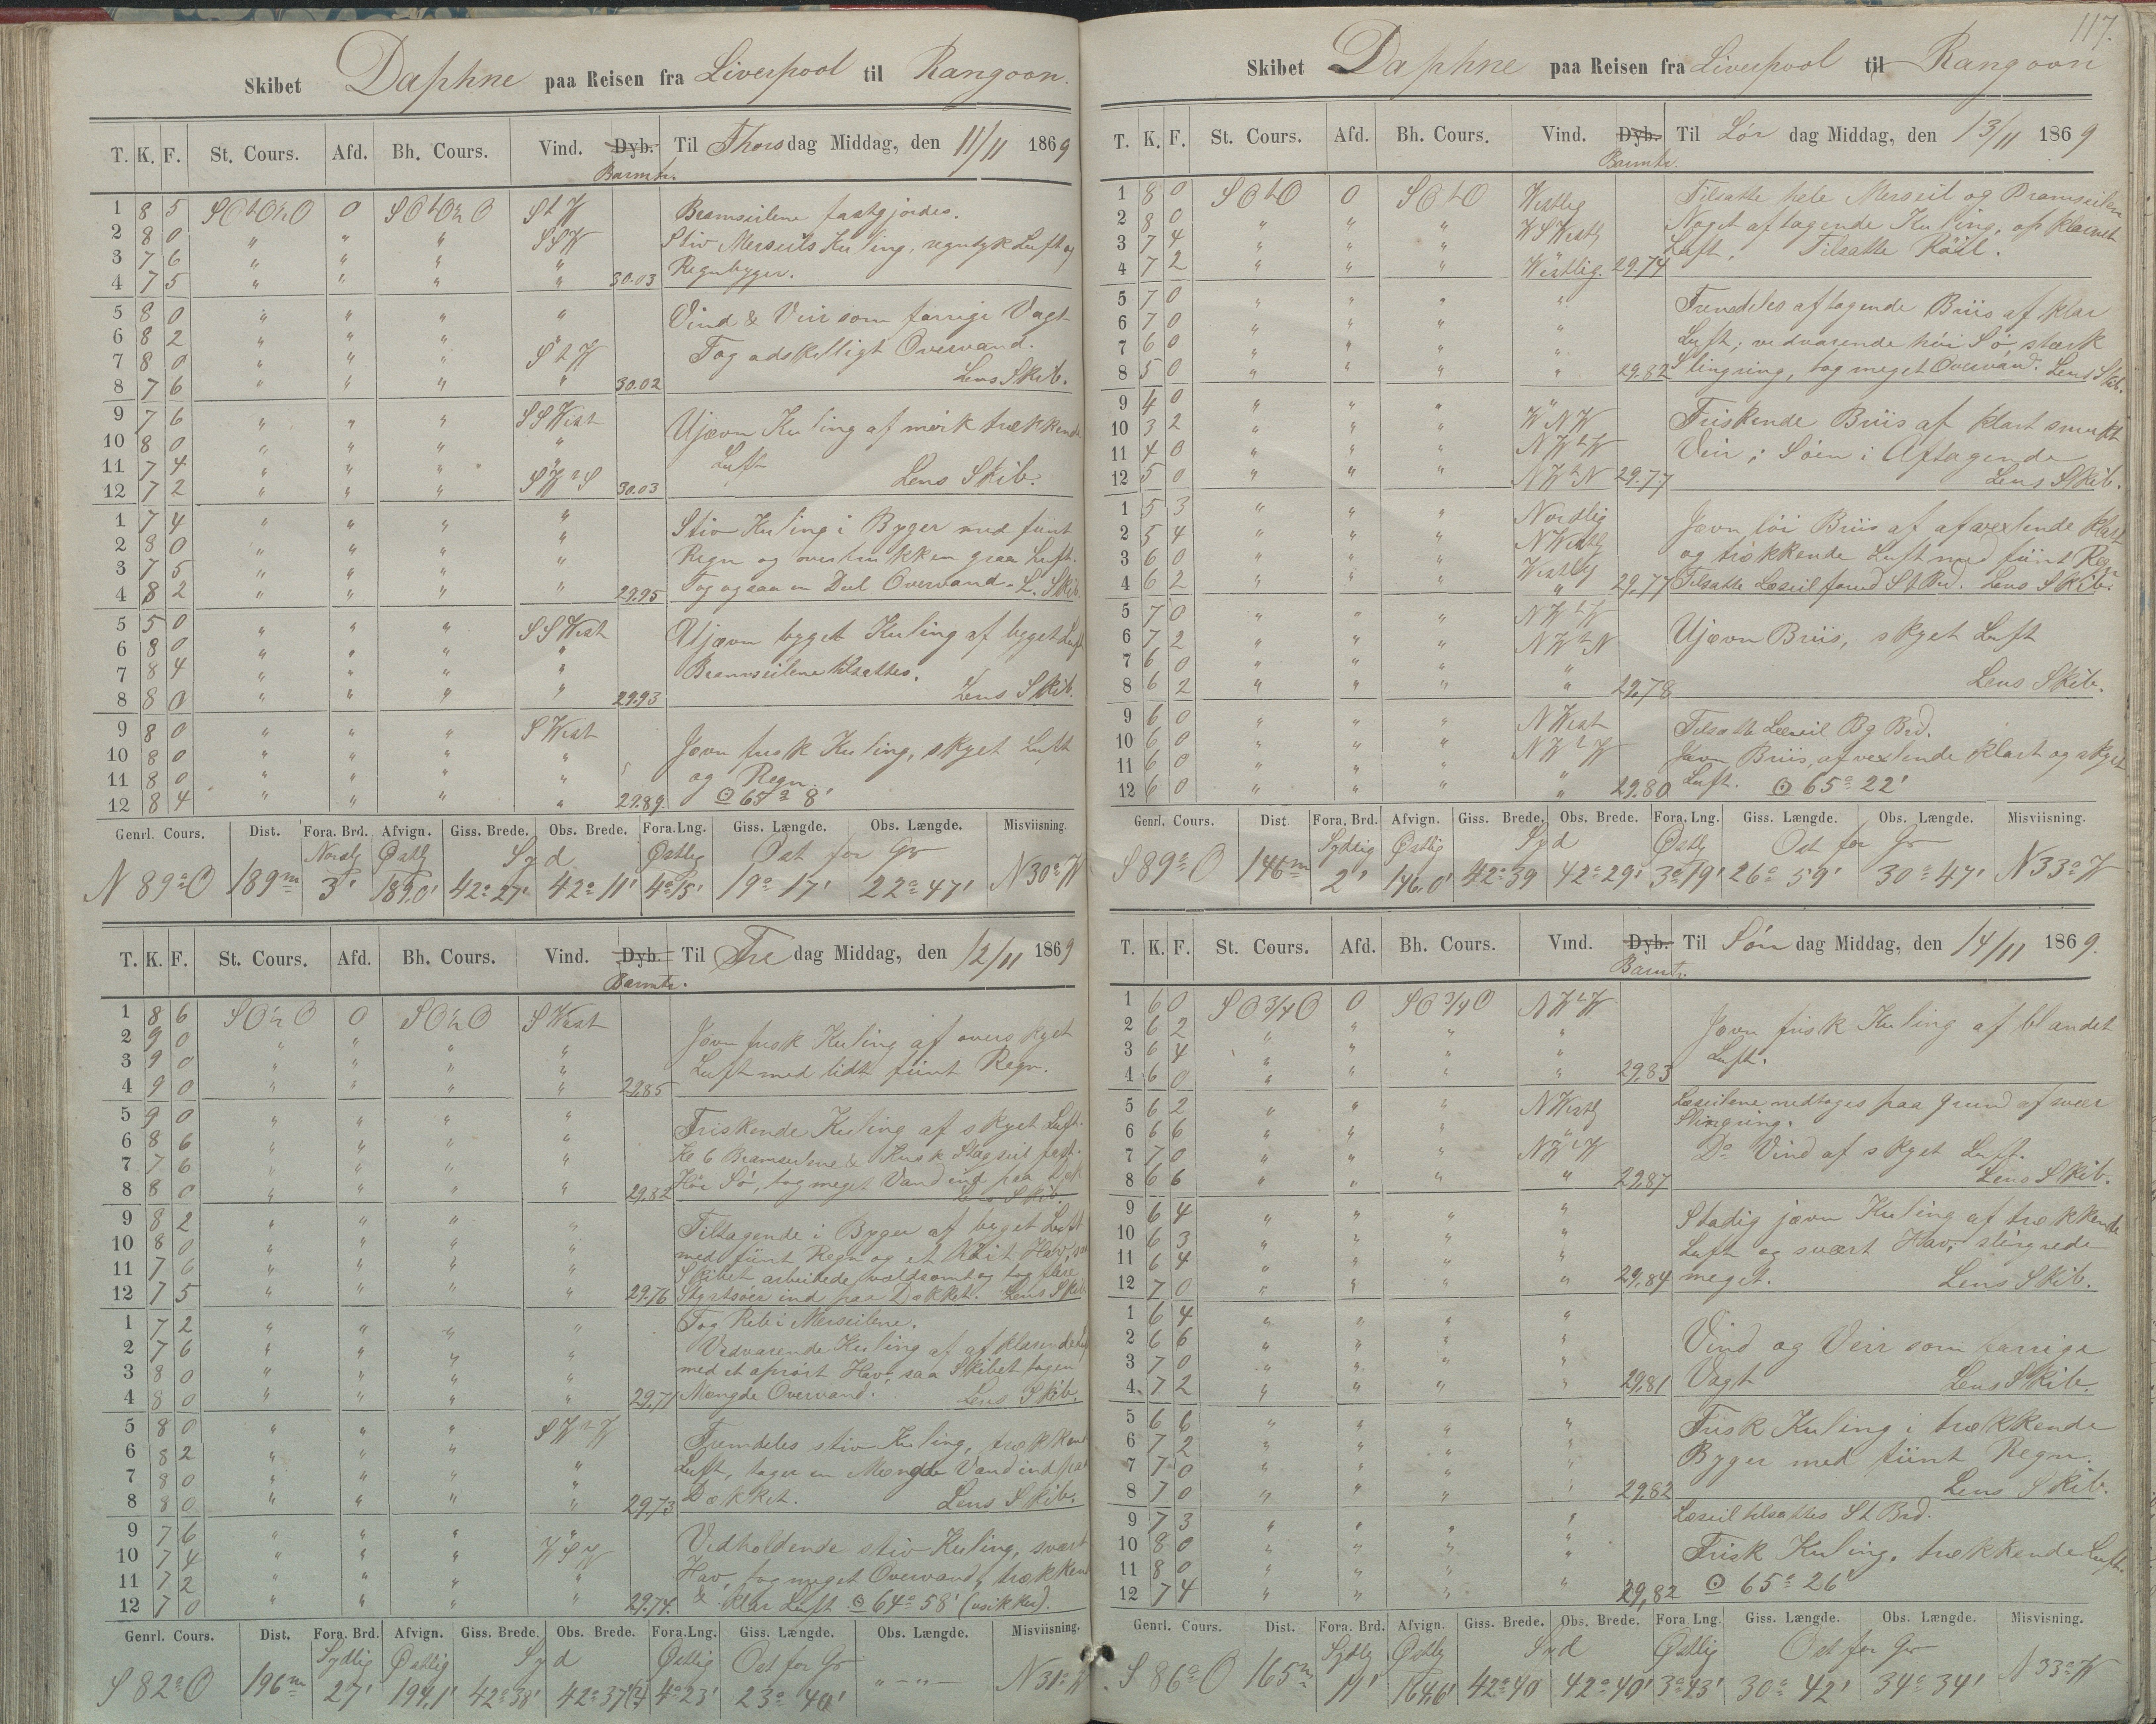 Skibet Daphne paa Reisen fra Liverpool til Rangoon.
T. K. F. St. Cours. Afd. Bh. Cours. Vind. Dyb. Til Thorsdag Middag, den 11/11 1869
Barmtr.
1 8 5 0 StW Bramseilene fastgjordes.
2 8 0 " " " SSW Stiv Merseils Kuling, regntyk Luft og
3 7 6 " " " " Regnbyger.
4 7 5 " " " " 30.03
5 8 0 " " " " Vind & Veir som forrige Vagt
6 8 2 " " " "
7 8 0 " " " StW Tog adskilligt Overvand.
8 7 6 " " " " 30.02 Lens Skib.
9 7 6 " " " SSWest Ujævn Kuling af mørk trækkende
10 8 0 " " " " Luft
11 7 4 " " " "
12 7 2 " " " 30.03 Lens Skib.
1 7 4 " " " " Stiv Kuling i Byger med fiint
2 8 0 " " " " Regn og overtrukken graa Luft.
3 7 5 " " " "
4 8 2 " " " " 29.95 Tog ogsaa en Deel Overvand. L. Skib.
5 5 0 " " " SSWest Ujævn byget Kuling af byget Luft
6 8 0 " " " "
7 8 4 " " " " Bramseilene tilsattes.
8 8 0 " " " " 29.93 Lens Skib.
9 8 0 " " " SWest Jævn frisk Kuling, skyet Luft
10 8 0 " " " "
11 8 0 " " " " og Regn.
12 8 4 " " " " 29.89. ☉ 65° 8'
Genrl. Cours. Dist. Fora. Brd. Afvign. Giss. Brede. Obs. Brede. Fora. Lng. Giss. Længde. Obs. Længde. Misviisning.
Nordlg Østlg Syd Østlig Ost for Gr
N 89° O 189m 3' 189,0' 42° 27' 42° 11' 4° 15' 19° 17' 22° 47' N 30° W
T. K. F. St. Cours. Afd. Bh. Cours. Vind. Dyb. Til Fredag Middag, den 12/11 1869
Barmtr.
1 8 6 SO½O 0 SO½O SWest Jævn frisk Kuling af overskyet
2 9 0 " " " "
3 9 0 " " " " Luft med lidt fiint Regn.
4 9 0 " " " " 29,85
5 9 0 " " " " Friskende Kuling af skyet Luft.
6 8 6 " " " " Kl 6 Bramseilene & Stagseil fast.
7 7 6 " " " "
8 8 0 " " " " 29,82 Høi Sø, tog meget Vand ind paa Dæk
Lens Skib.
9 8 2 " " " " Tiltagende i Byger af byget Luft
10 8 0 " " " " med fiint Regn og et Høit Hav, saa
11 7 6 " " " " Skibet arbeidede voldsomt og tog flere
12 7 5 " " " " 29,76 Styrtsøer ind paa Dækket. Lens Skib
1 7 2 " " " " Tog Reb i Merseilene.
2 7 6 " " " " Vedvarende Kuling af afklarende Luft
3 8 0 " " " " med et oprørt Hav, saa Skibet tog en
4 8 0 " " " " 29,71 Mængde Overvand. Lens Skib.
5 8 0 " " " SWtW Fremdeles stiv Kuling, trækkend
6 8 2 " " " "
7 8 0 " " " " Luft, tager en Mængde Vand ind paa
8 8 0 " " " " 29,73 Dækket. Lens Skib.
9 7 6 " " " " Vedholdende stiv Kuling, svært
10 7 4 " " " WSW
11 7 2 " " " " Hav, tog meget Overvand, trækkend
12 7 0 " " " " 29.74. & klar Luft ☉ 64° 58' (usikker).
Genrl. Cours. Dist. Fora. Brd. Afvign. Giss. Brede. Obs. Brede. Fora. Lng. Giss. Længde. Obs. Længde. Misviisning.
Sydlig Østlig Syd Østlig Ost for Gr
S 82° O 196m 27' 194,1' 42° 38' 42° 37' 4° 23' 23° 40' " — " — N 31° W
117.
Skibet Daphne paa Reisen fra Liverpool til Rangoon
T. K. F. St. Cours. Afd. Bh. Cours. Vind. Dyb. Til Lørdag Middag, den 13/11 1869
Barmtr.
1 8 0 SOtO 0 SOtO Westlig Tilsatte hele Merseil og Bramseilene
2 8 0 " " " WSWestlg Noget aftagende Kuling, opklarnet
3 7 4 " " " " Luft, Tilsatte Röil.
4 7 2 " " " Westlig. 29.74
5 7 0 " " " " Fremdeles aftagende Briis af klar
6 7 0 " " " "
7 6 0 " " " " Luft; vedvarende høi Sø, stærk
8 5 0 " " " " 29.82 Slingring, tog meget Overvand. Lens Skib.
9 4 0 " " " " Friskende Briis af klart smukt
10 3 2 " " " WNW
11 4 0 " " " NWtW Veir; Søen i Aftagende
12 5 0 " " " NWtN 29.77 Lens Skib.
1 5 3 " " " Nordlig Jævn løi Briis af afvexlende klart
2 5 4 " " " NWestlg
3 6 0 " " " Westlg og trækkende Luft med fiint Regn
4 6 2 " " " " 29,77 Tilsatte Læseil forud St Brd. Lens Skib.
5 7 0 " " " NWtW
6 7 2 " " " NWtN Ujævn Briis, skyet Luft
7 6 0 " " " "
8 6 2 " " " " 29,78 Lens Skib.
9 6 0 " " " NWest Tilsatte Læseil Bg Brd.
10 6 0 " " " NWtW
11 6 0 " " " " Jævn Briis, afvexlende klart og skyet
12 6 0 " " " " 29.80 Luft. ☉ 65° 22'
Genrl. Cours. Dist. Fora. Brd. Afvign. Giss. Brede. Obs. Brede. Fora. Lng. Giss. Længde. Obs. Længde. Misviisning.
Sydlig Østlig Syd Østlg Ost for Gr
S 89° O 146m 2' 146,0' 42° 39 42° 29' 3° 19' 26° 59' 30° 47' N 33° W
T. K. F. St. Cours. Afd. Bh. Cours. Vind. Dyb. Til Søndag Middag, den 14/11 1869.
Barmtr.
1 6 0 SO¾O 0 SO¾O NWtW Jævn frisk Kuling af blandet
2 6 2 " " " "
3 6 4 " " " " Luft.
4 6 0 " " " " 29,83
5 6 2 " " " NWestlg Læseilene nedtoges paa Grund af svær
6 6 6 " " " " Slingring.
7 7 0 " " " NWtW Do Vind af skyet Luft.
8 6 6 " " " " 29,87 Lens Skib.
9 6 4 " " " " Stadig jævn Kuling af trækkende
10 6 3 " " " "
11 6 4 " " " " Luft og svært Hav, slingrede
12 7 0 " " " " 29,84 meget. Lens Skib.
1 6 4 " " " "
2 6 6 " " " " Vind og Veir som forrige
3 7 0 " " " "
4 7 2 " " " " 29,81 Vagt Lens Skib.
5 6 6 " " " " Frisk Kuling i trækkende
6 7 2 " " " "
7 7 0 " " " " Byger med fiint Regn.
8 7 0 " " " " 29,82 Lens Skib.
9 7 3 " " " " Læseil tilsattes St Brd.
10 8 0 " " " "
11 8 0 " " " " Frisk Kuling, trækkende Luft.
12 7 4 " " " " 29,82 ☉ 65° 26'
Genrl. Cours. Dist. Fora. Brd. Afvign. Giss. Brede. Obs. Brede. Fora Lng. Giss. Længde. Obs. Længde. Misvisning.
Sydlg Østlg Syd Østlig Ost for Gr
S 86° O 165m 11' 164,6' 42° 40 42° 40' 3° 43' 30° 42' 34° 34' N 33° W